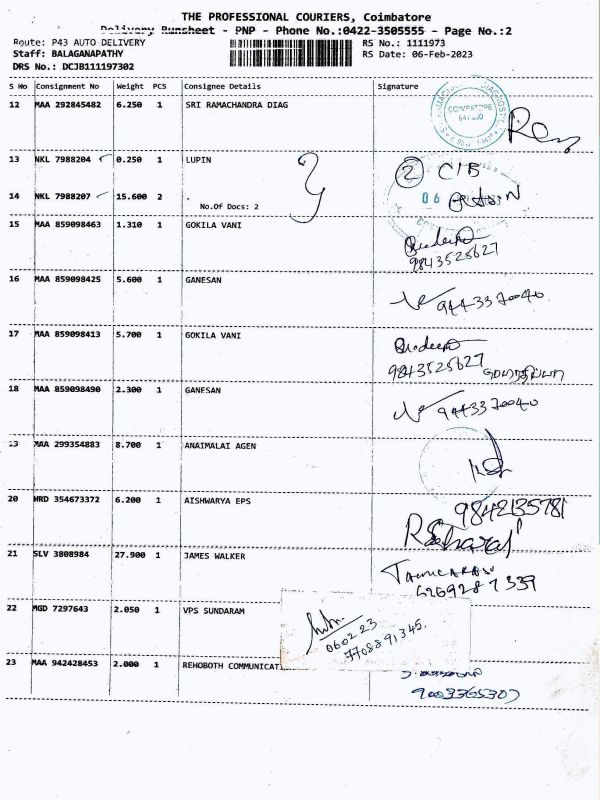 THE PROFESSIONAL COURIERS, Coimbatore
Delivery Runsheet - PNP - Phone No.:0422-3505555 - Page No.:2
Route: P43 AUTO DELIVERY RS No.: 1111973
Staff: BALAGANAPATHY RS Date: 06-Feb-2023
DRS No.: DCJB111197302
S No Consignment No Weight PCS Consignee Details Signature
12 MAA 292845482 6.250 1 SRI RAMACHANDRA DIAG
COIMBATORE
13 NKL 7988204 0.250 1 LUPIN
2 C/B
14 NKL 7988207 15.600 2 .
No.Of Docs: 2
06
15 MAA 859098463 1.310 1 GOKILA VANI
9843525627
16 MAA 859098425 5.600 1 GANESAN
9443370040
17 MAA 859098413 5.700 1 GOKILA VANI
9843525627
18 MAA 859098490 2.300 1 GANESAN
9443370040
19 MAA 299354883 8.700 1 ANAIMALAI AGEN
20 HRD 354673372 6.200 1 AISHWARYA EPS
9842135781
21 SLV 3808984 27.900 1 JAMES WALKER
22 MGD 7297643 2.050 1 VPS SUNDARAM
060223
7708891345.
23 MAA 942428453 2.000 1 REHOBOTH COMMUNICAT